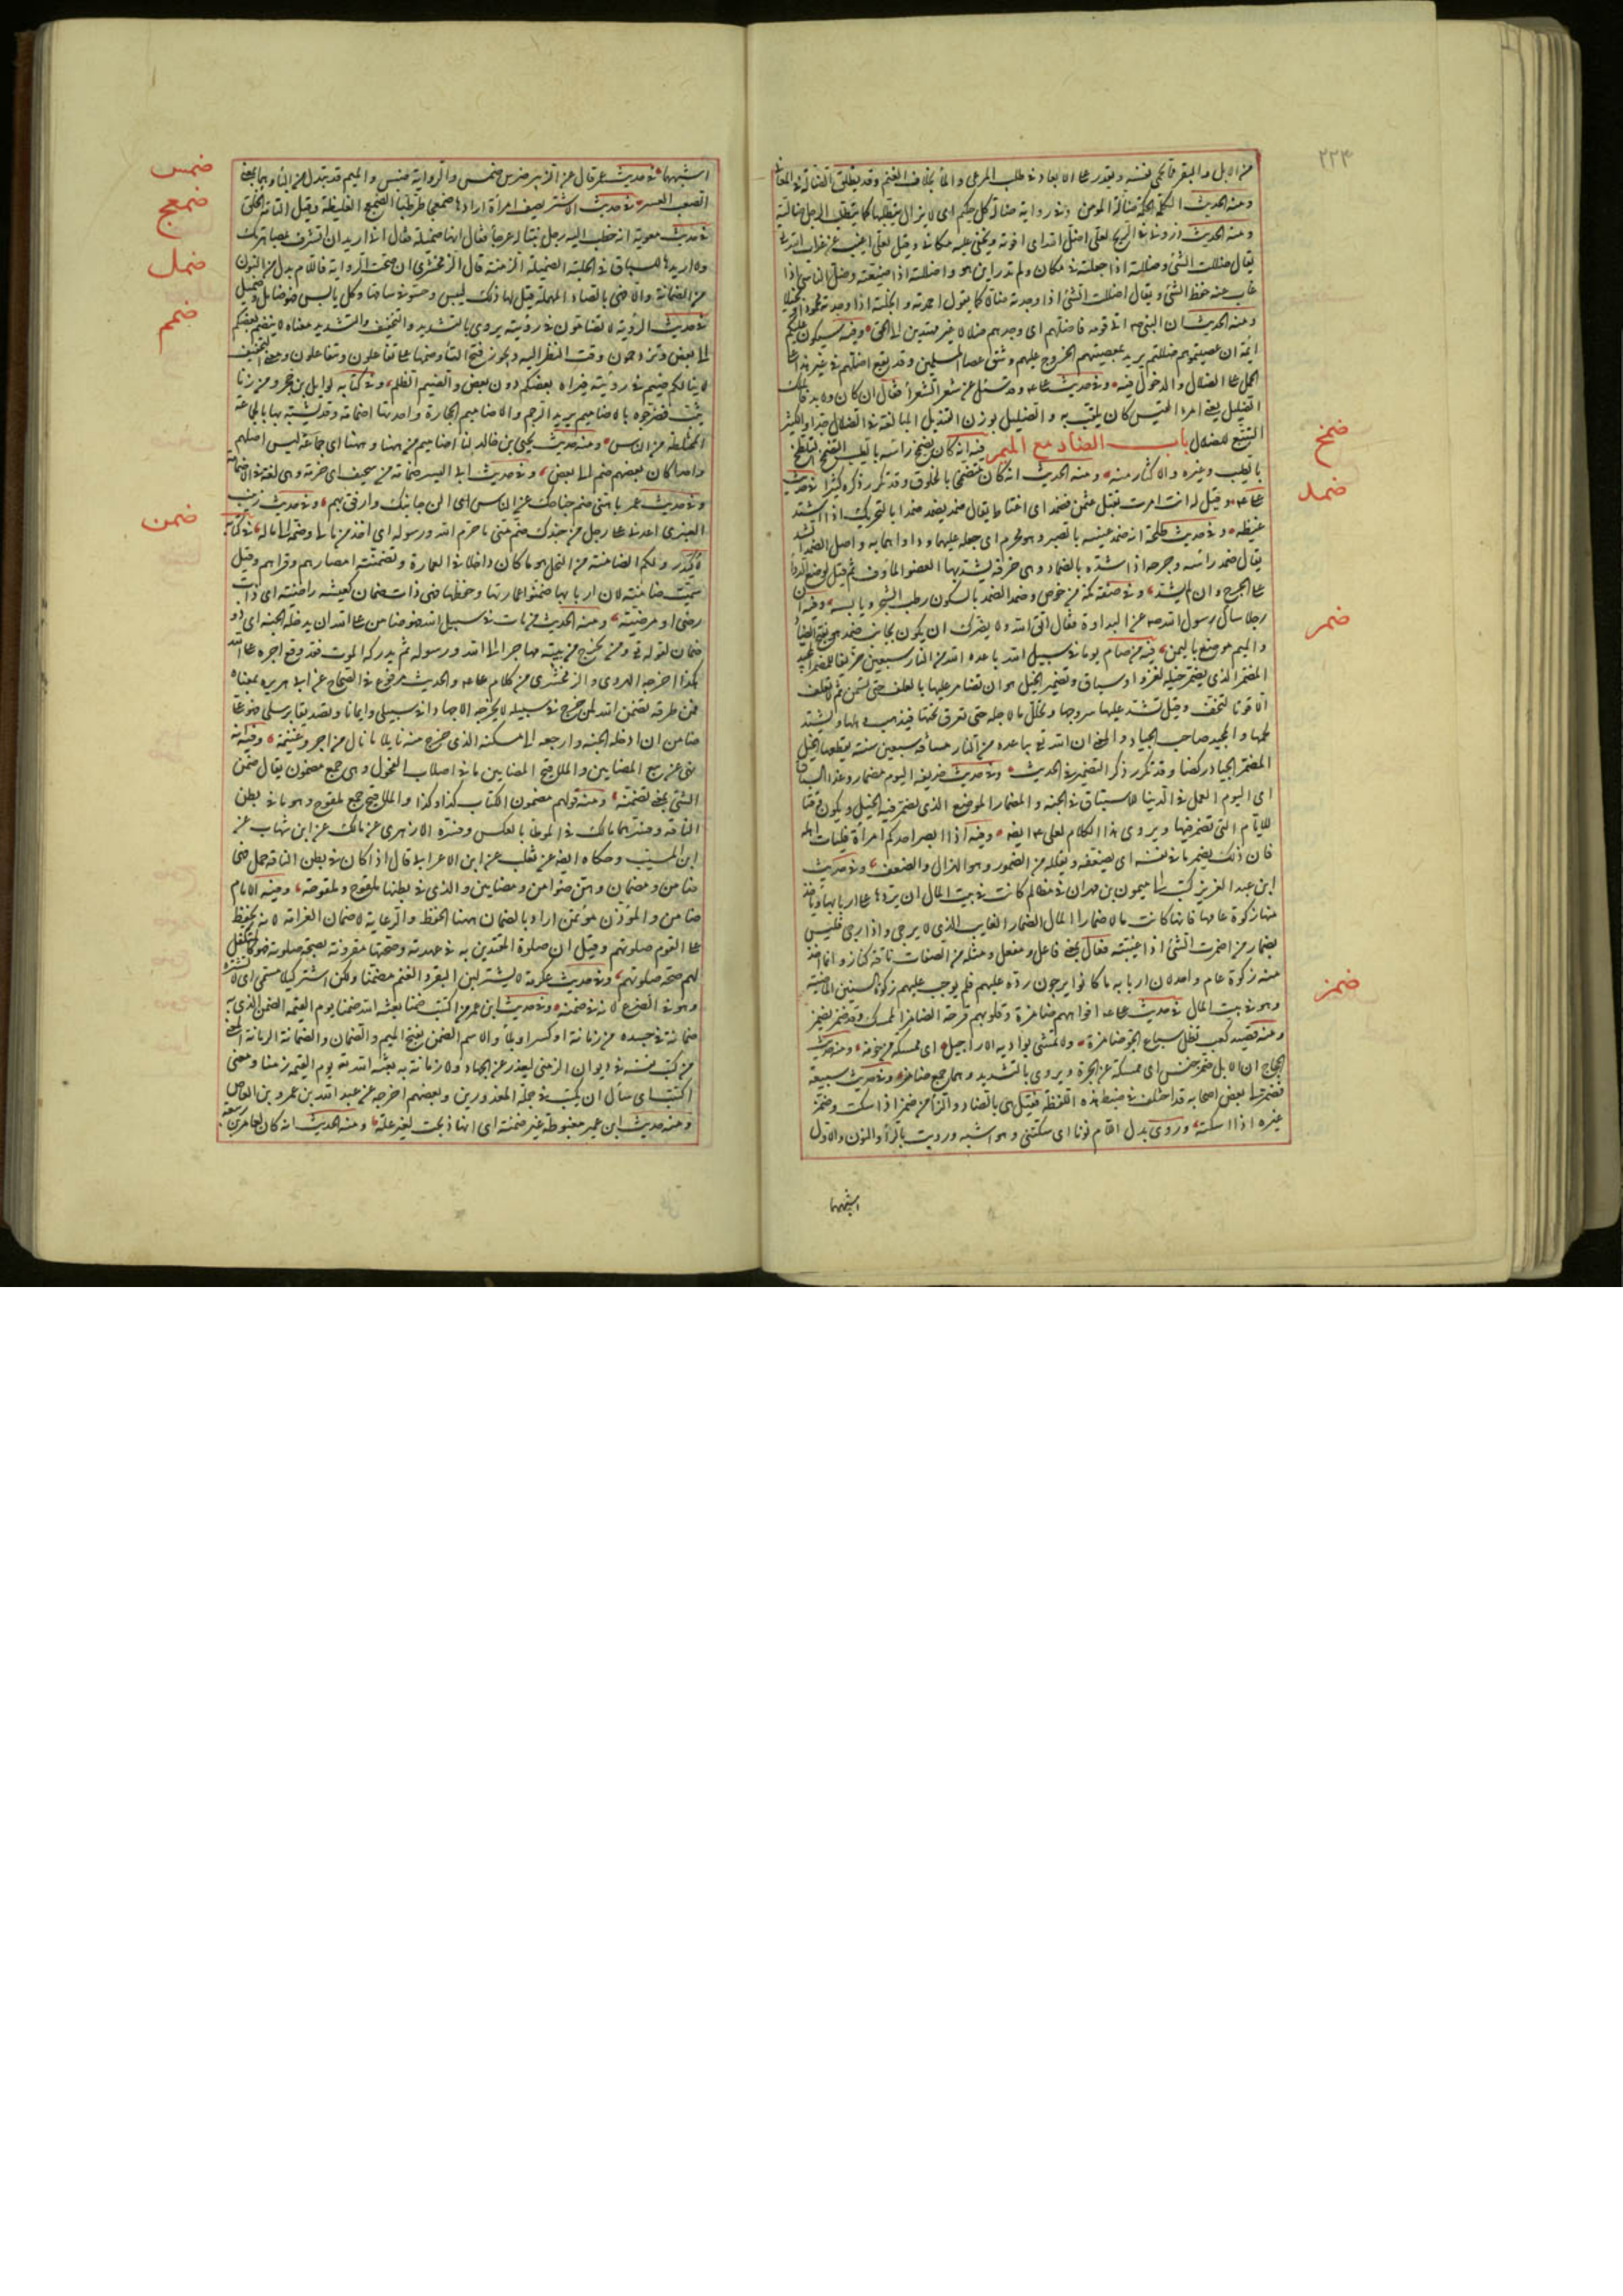 ٢٢٤
من الابل والبقر مما يحمي نفسه ويقدر على الابعاد في طلب المرعى والماء بخلاف الغنم وقد يطلق الضالة على المعاني
ومنه الحديث الكلمة الحكمة ضالة المؤمن وفي رواية ضالة كل حكيم اى لا يزال يتطلبها كما يتطلب الرجل ضالته
ومنه الحديث ذروني في الريح لعلي اضل الله اى افوته ويخفى عليه مكاني وقيل لعلي اغيب عن عذاب الله
يقال ضللت الشئ وضللته اذا جعلته في مكان ولم تدر اين هو واضللته اذا ضيعته وضل الناسي اذا
غاب عنه حفظ الشئ ويقال اضللت الشئ اذا وجدته ضالا كما يقول احمدته وابخلته اذا وجدته محمودا وبخيلا
ومنه الحديث ان النبي اتى قومه فاضلهم اى وجدهم ضلالا غير مهتدين الى الحق وفيه سيكون عليكم
ائمة ان عصيتموهم ضللتم يريد بمعصيتهم الخروج عليهم وشق عصا المسلمين وقد يقع اضلهم في غير هذا
الحمل على الضلال والدخول فيه وفي حديث على وقد سئل عن اشعر الشعراء فقال ان كان ولا بد فالملك
الضليل يعنى امرء القيس كان يلقب به والضليل بوزن القنديل المبالغة في الضلال جدا والكثير
التتبع للضلال باب الضاد مع الميم فيه انه كان يضمخ راسه بالطيب التضمخ التلطخ
بالطيب وغيره والاكثار منه ومنه الحديث انه كان متضمخا بالخلوق وقد تكرر ذكره كثيرا في حديث
على وقيل له انت امرت بقتل عثمن فضمد اى اغتاظ يقال ضمد يضمد ضمدا بالتحريك اذا اشتد
غيظه وفي حديث طلحة انه ضمد عينيه بالصبر وهو محرم اى جعله عليهما وداواهما به واصل الضمد الشد
يقال ضمد راسه وجرحه اذا شده بالضماد وهى خرقة يشد بها العضو المأوف ثم قيل لوضع الدواء
على الجرح وان لم يشد وفي صفة مكة من خوص وضمد الضمد بالسكون رطب الشجر ويابسه وفيه ان
رجلا سال رسول الله عن البداوة فقال اتق الله ولا يضرك ان يكون بجانب ضمد هو بفتح الضاد
والميم موضع باليمن فيه من صام يوما في سبيل الله باعده الله من النار سبعين خريفا للمضمر المجيد
المضمر الذى يضمر خيله لغزو او سباق وتضمير الخيل هو ان تضامر عليها بالعلف حتى تسمن ثم لا تعلف
الا قوتا لتخف وقيل تشد عليها سروجها وتجلل بالاجلة حتى تعرق تحتها فيذهب رهلها ويشتد
لحمها والمجيد صاحب الجياد والمعنى ان الله يباعده من النار مسافة سبعين سنة يقطعها الخيل
المضمرة الجياد ركضا وقد تكرر ذكر التضمير في الحديث وفي حديث حذيفة اليوم مضمار وغدا السباق
اى اليوم العمل في الدنيا للاستباق في الجنة والمضمار الموضع الذى يضمر فيه الخيل ويكون وقتا
للايام التى تضمر فيها ويروى هذا الكلام لعلى ايضا وفيه اذا ابصر احدكم امراة فليات اهله
فان ذلك يضمر ما في نفسه اى يضعفه ويقلله من الضمور وهو الهزال والضعف وفي حديث
ابن عبد العزيز كتب الى ميمون بن مهران في مظالم كانت في بيت المال ان يردها على اربابها وياخذ
منها زكوة عامها فانها كانت مالا ضمارا المال الضمار الغايب الذى لا يرجى واذا رجى فليس
بضمار من اضمرت الشئ اذا غيبته فعال بمعنى فاعل او مفعل ومثله من الصفات ناقة كناز وانما اخذ
منه زكوة عام واحد لان اربابه ما كانوا يرجون رده عليهم فلم يوجب عليهم زكوة السنين الماضية
وهو في بيت المال في حديث على افواههم ضامزة وقلوبهم قرحة الضامز الممسك وقد ضمز يضمز
ومنه قصيد كعب تظل سباع الجو ضامزة ولا تمشى بواديه الاراجيل اى ممسكة من خوفه ومنه حديث
الحجاج ان الابل ضمز خنس اى ممسكة عن الجرة ويروى بالتشديد وهما جمع ضامز وفي حديث سبيعة
فضمز لي بعض اصحابه قد اختلف في ضبط هذه اللفظة فقيل هى بالضاد والزا من ضمز اذا سكت وضمز
غيره اذا اسكته وروى بدل اللام نونا اى سكتني وهو اشبه ورويت بالراء والنون والاول
اشبهها
ضمخ
ضمد
ضمر
ضمز
اشبهها في حديث عمر قال عن الزبير ضرس ضمس والرواية ضبس والميم قد تبدل من الباء وهما بمعنى
الصعب العسر في حديث الاشتر يصف امراة ارادها ضمعجا طرطبا الضمعج الغليظة وقيل التامة الخلق
في حديث معوية انه خطب اليه رجل بنتا له عرجا فقال انها ضميلة فقال اني اريد ان اتشرف بمصاهرتك
ولا اريدها للسباق في الحلبة الضميلة الزمنة قال الزمخشرى ان صحت الرواية فاللام بدل من النون
من الضمانة والا فهى بالصاد المهملة قيل لها ذلك ليبس وجسوء في ساقها وكل يابس فهو ضامل وضميل
في حديث الرؤية لا تضامون في رؤيته يروى بالتشديد والتخفيف والتشديد معناه لا ينضم بعضكم
الى بعض وتزدحمون وقت النظر اليه ويجوز فتح التاء وضمها على تفاعلون وتتفاعلون ومعنى التخفيف
لا ينالكم ضيم في رؤيته فيراه بعضكم دون بعض والضيم الظلم وفي كتابه لوايل بن حجر ومن زنا
من ثيب فضرجوه بالاضاميم يريد الرجم والاضاميم الحجارة واحدتها اضمامة وقد يشبه بها الجماعة
المختلفة من الناس ومنه حديث يحيى بن خالد لنا اضاميم من ههنا وههنا اى جماعة ليس اصلهم
واحدا كان بعضهم ضم الى بعض وفي حديث ابي اليسر ضمامة من صحف اى حزمة وهى لغة في الاضمامة
وفي حديث عمر يا هني ضم جناحك عن الناس اى الن جانبك وارفق بهم وفي حديث زبيب
العنبرى اعدني على رجل من جندك ضم مني ما حرم الله ورسوله اى اخذ من مالي وضمه الى ماله في كتابه
لاكيدر ولكم الضامنة من النخل هو ما كان داخلا في العمارة وتضمنته امصارهم وقراهم وقيل
سميت ضامنة لان اربابها ضمنوا عمارتها وحفظها فهى ذات ضمان كعيشة راضية اى ذات
رضى او مرضية ومنه الحديث من مات في سبيل الله فهو ضامن على الله ان يدخله الجنة اى ذو
ضمان لقوله ومن يخرج من بيته مهاجرا الى الله ورسوله ثم يدركه الموت فقد وقع اجره على الله
هكذا اخرجه الهروى والزمخشرى من كلام على والحديث مرفوع في الصحاح عن ابي هريرة بمعناه
فمن طرقه تضمن الله لمن خرج في سبيله لا يخرجه الا جهادا في سبيلى وايمانا بى وتصديقا برسلى فهو على
ضامن ان ادخله الجنة وارجعه الى مسكنه الذى خرج منه نايلا ما نال من اجر وغنيمة وفيه انه
نهى عن بيع المضامين والملاقيح المضامين ما في اصلاب الفحول وهى جمع مضمون يقال ضمن
الشئ بمعنى تضمنه ومنه قولهم مضمون الكتاب كذا وكذا والملاقيح جمع ملقوح وهو ما في بطن
الناقة وفسرهما مالك في الموطا بالعكس وفسره الازهرى عن مالك عن ابن شهاب عن
ابن المسيب وحكاه ايضا عن ثعلب عن ابن الاعرابي قال اذا كان في بطن الناقة حمل فهى
ضامن ومضمان وهن ضوامن ومضامين والذى في بطنها ملقوح وملقوحة وفيه الامام
ضامن والمؤذن مؤتمن اراد بالضمان ههنا الحفظ والرعاية لا ضمان الغرامة لانه يحفظ
على القوم صلوتهم وقيل ان صلوة المقتدين به في عهدته وصحتها مقرونة بصحة صلوته فهو كالمتكفل
لهم صحة صلوتهم وفي حديث عكرمة لا يشتر لبن البقر والغنم مضمنا ولكن اشتر كيلا مسمى اى لا تشتره
وهو في الضرع لانه في ضمنه وفي حديث ابن عمر من اكتتب ضمنا بعثه الله ضمنا يوم القيمة الضمن الذى به
ضمانة في جسده من زمانة او كسر او بلاء والاسم الضمن بفتح الميم والضمان والضمانة الزمانة المعنى
من كتب نفسه في ديوان الزمنى ليعذر عن الجهاد ولا زمانة به بعثه الله يوم القيمة زمنا ومعنى
اكتتب اى سأل ان يكتب في جملة المعذورين وبعضهم اخرجه عن عبد الله بن عمرو بن العاص
ومنه حديث ابن عمير معبوطة غير ضمنة اى انها ذبحت لغير علة ومنه الحديث انه كان لعامر بن ربيعة
ضمس
ضمعج
ضمل
ضمم
ضمن